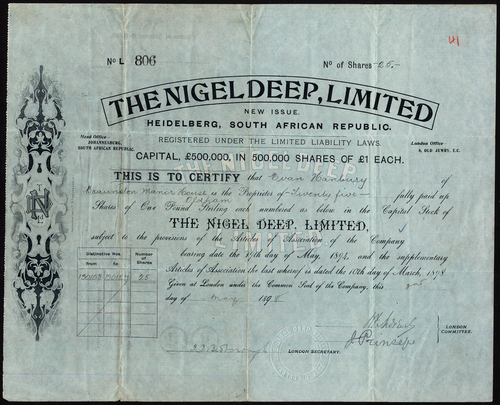 No L 806
No of Shares -25.-
THE NIGEL DEEP, LIMITED
NEW ISSUE.
HEIDELBERG, SOUTH AFRICAN REPUBLIC.
Head Office—
JOHANNESBURG,
SOUTH AFRICAN REPUBLIC.
REGISTERED UNDER THE LIMITED LIABILITY LAWS.
London Office—
8, OLD JEWRY, E.C.
CAPITAL, £500,000, IN 500,000 SHARES OF £1 EACH.
THIS IS TO CERTIFY that Evan Hanbury
Manor House is the Proprietor of Twenty five fully paid up
Oakham
Shares of One Pound Sterling each numbered as below in the Capital Stock of
THE NIGEL DEEP, LIMITED,
subject to the provisions of the Articles of Association of the Company
bearing date the 17th day of May, 1894, and the supplementary
Articles of Association the last whereof is dated the 10th day of March, 1898
Given at London under the Common Seal of the Company, this
day of May 1898
Distinctive Nos.
from to
Number of Shares
25
J. Prinsep
LONDON COMMITTEE.
LONDON SECRETARY.